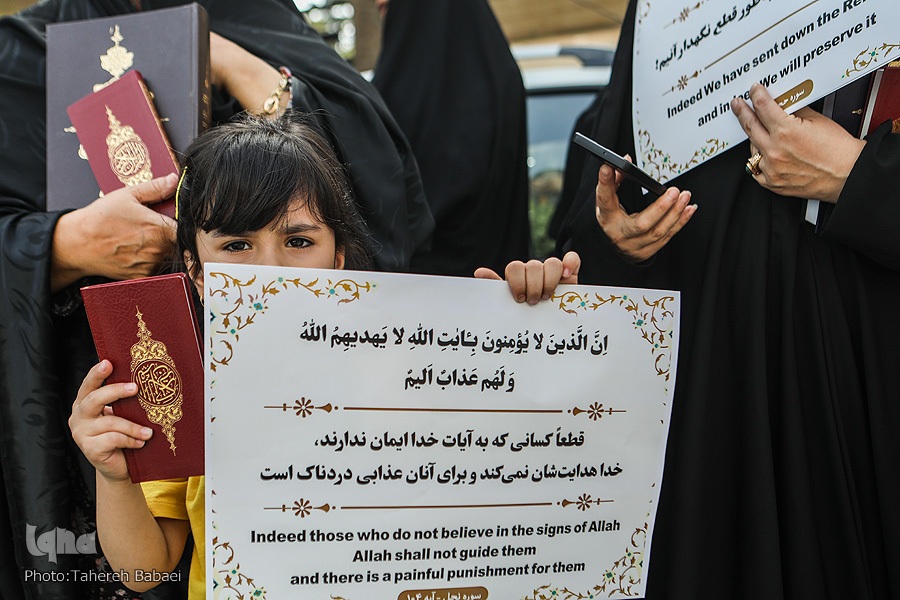 طور قطع نگهدار آنیم!
Indeed We have sent down the
and indeed We will preserve it
اِنَّ الَّذینَ لا یُؤمِنونَ بِـٔایٰتِ اللّٰهِ لا یَهدیهِمُ اللّٰهُ
وَلَهُم عَذابٌ اَلیمٌ
قطعاً کسانی که به آیات خدا ایمان ندارند،
خدا هدایت‌شان نمی‌کند و برای آنان عذابی دردناک است
Indeed those who do not believe in the signs of Allah
Allah shall not guide them
and there is a painful punishment for them
سوره نحل - آیه ۱۰۴
iqna
Photo:Tahereh Babaei